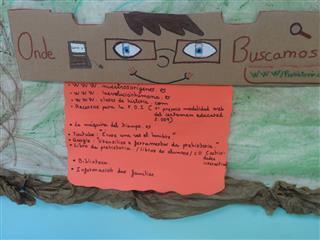 Onde
Buscamos
- WWW. nuestrosorigenes. es
- WWW. laevolucionhumana. es
- WWW. clases de historia. com
- Recursos para la P.D.I. (1º premio modalidad web
del certamen educared
2.009)
- La máquina del tiempo. es
- Youtube: "Érase una vez el hombre"
- Google: "Utensilios e ferramentas da prehistoria."
- Libro da prehistoria / libros de alumnos / CD (activi-
dades
interactivas)
- Biblioteca
- Información das familias